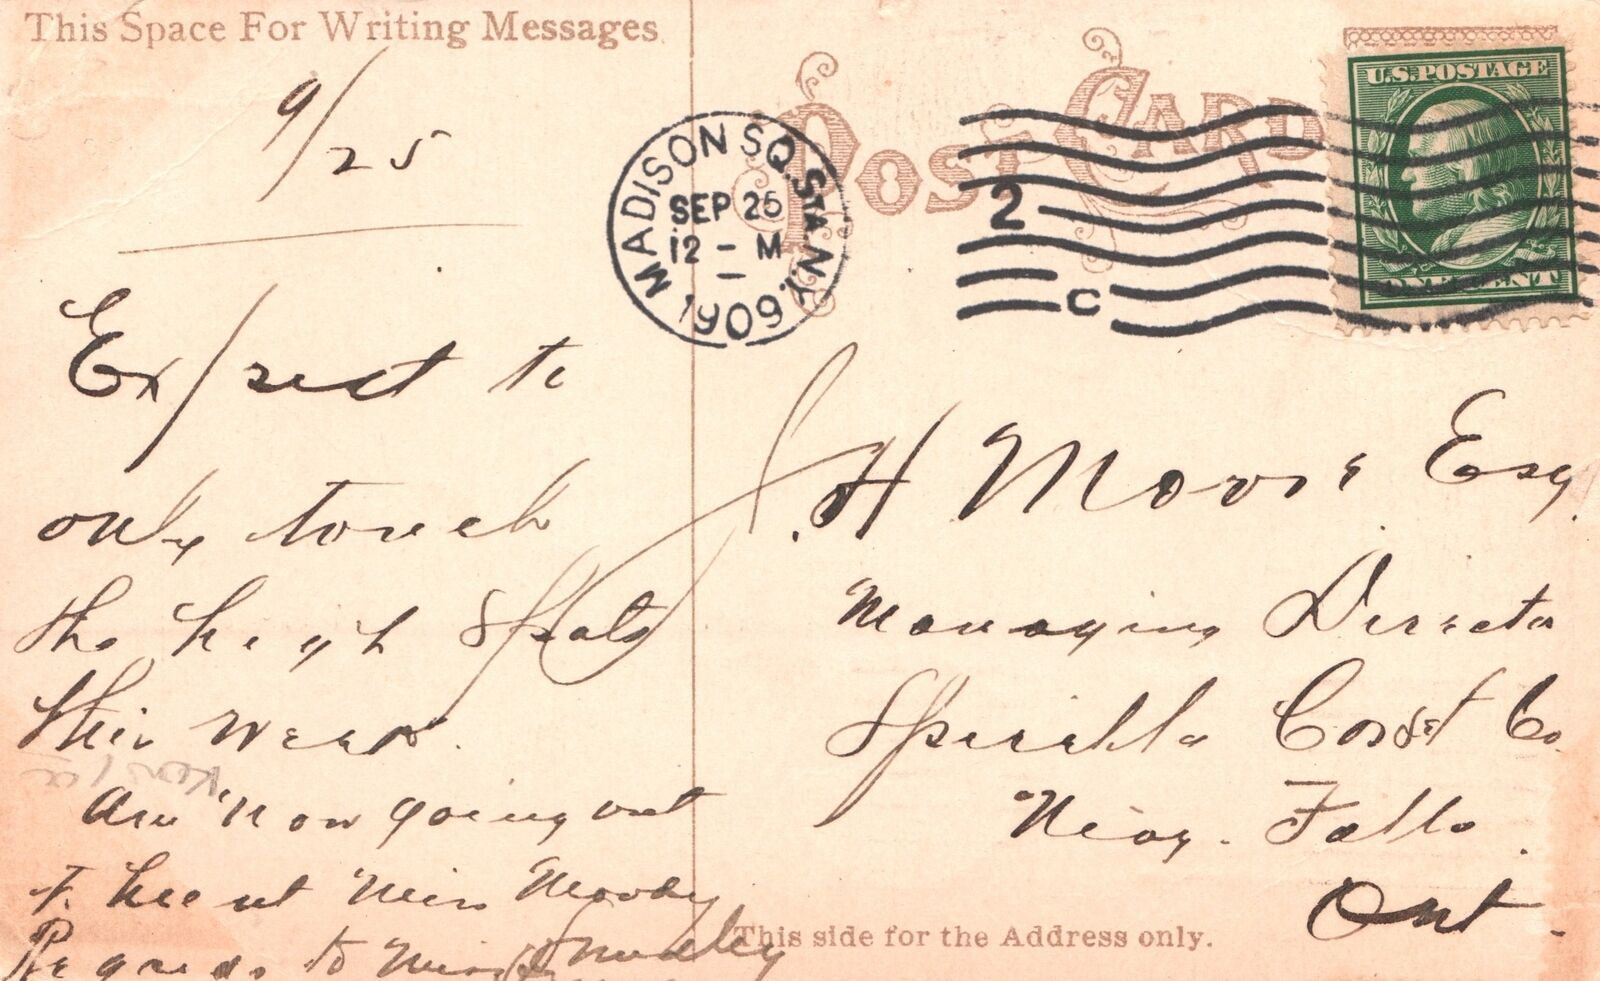 This Space For Writing Messages
POST CARD
U.S. POSTAGE
ONE CENT
MADISON SQ. STA. N.Y. 1909
SEP 25
12 - M
2
C
9/25
Expect to
only touch
the high Spots
this week.
Am now going out
to hunt Miss Moody
Regards to Miss
H Moore Esq.
Managing Director
Spirella Corset Co
Niag. Falls.
Ont.
This side for the Address only.